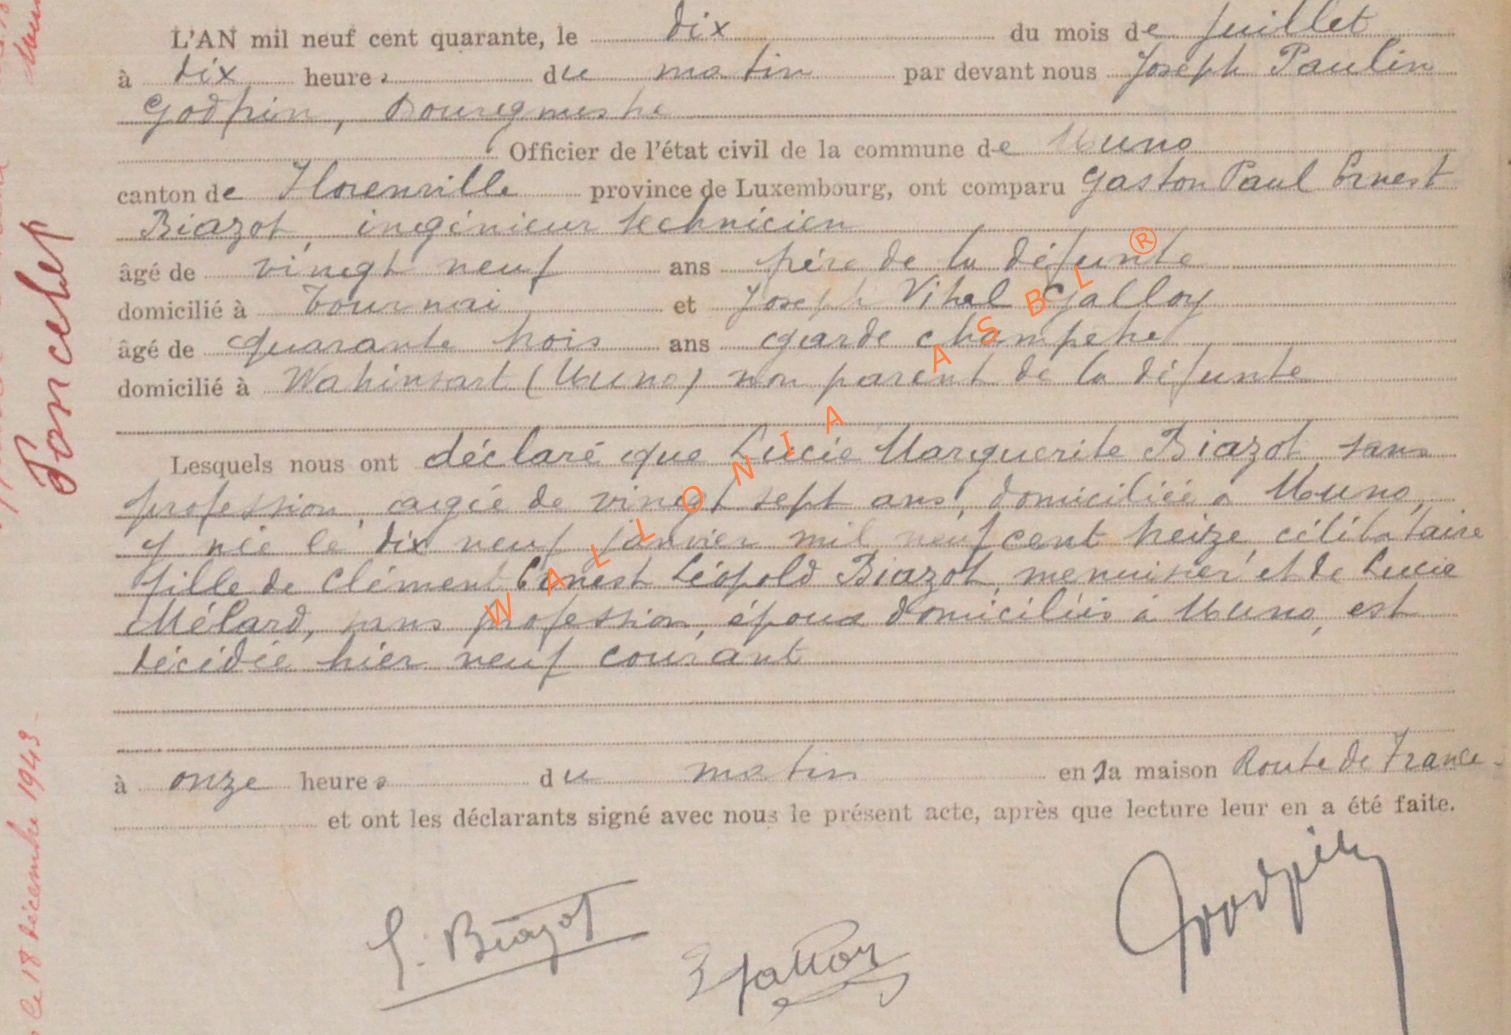 L'AN mil neuf cent quarante, le dix du mois de juillet
à dix heures du matin par devant nous Joseph Paulin
Godfrin, Bourgmestre
Officier de l'état civil de la commune de Muno
canton de Florenville province de Luxembourg, ont comparu Gaston Paul Ernest
Biazot, ingénieur technicien
âgé de vingt neuf ans frère de la défunte
domicilié à Tournai et Joseph Vital Galloy
âgé de quarante trois ans garde champetre
domicilié à Watrinsart (Muno) non parent de la défunte
Lesquels nous ont déclaré que Lucie Marguerite Biazot sans
profession, agée de vingt sept ans, domiciliée à Muno,
y née le dix neuf janvier mil neuf cent treize, célibataire
fille de Clément Ernest Léopold Biazot, menuisier et de Lucie
Mélard, sans profession, époux domiciliés à Muno, est
décédée hier neuf courant
à onze heures du matin en sa maison Route de France
et ont les déclarants signé avec nous le présent acte, après que lecture leur en a été faite.
G. Biazot
Galloy
Godfrin
WALLONIA ASBL ®
Poncelet
le 18 décembre 1943